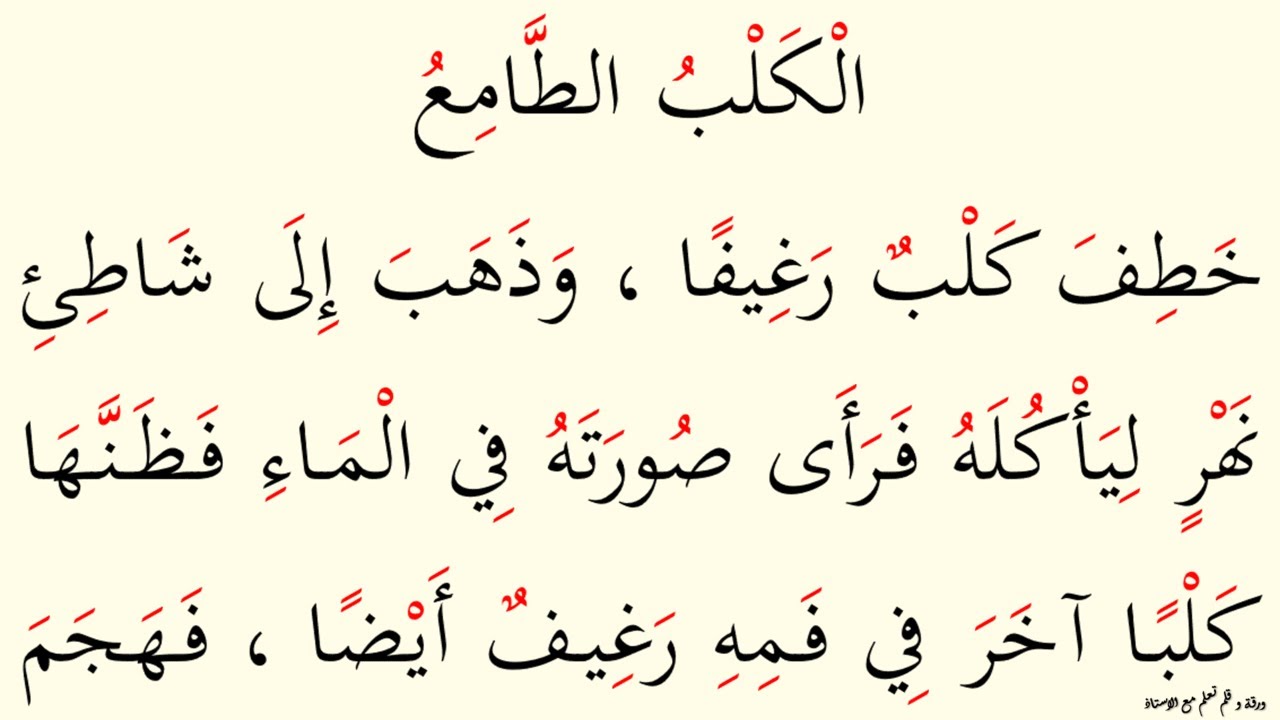 الْكَلْبُ الطَّامِعُ
خَطِفَ كَلْبٌ رَغِيفًا ، وَذَهَبَ إِلَى شَاطِئِ
نَهْرٍ لِيَأْكُلَهُ فَرَأَى صُورَتَهُ فِي الْمَاءِ فَظَنَّهَا
كَلْبًا آخَرَ فِي فَمِهِ رَغِيفٌ أَيْضًا ، فَهَجَمَ
ورقة و قلم تعلم مع الاستاذ